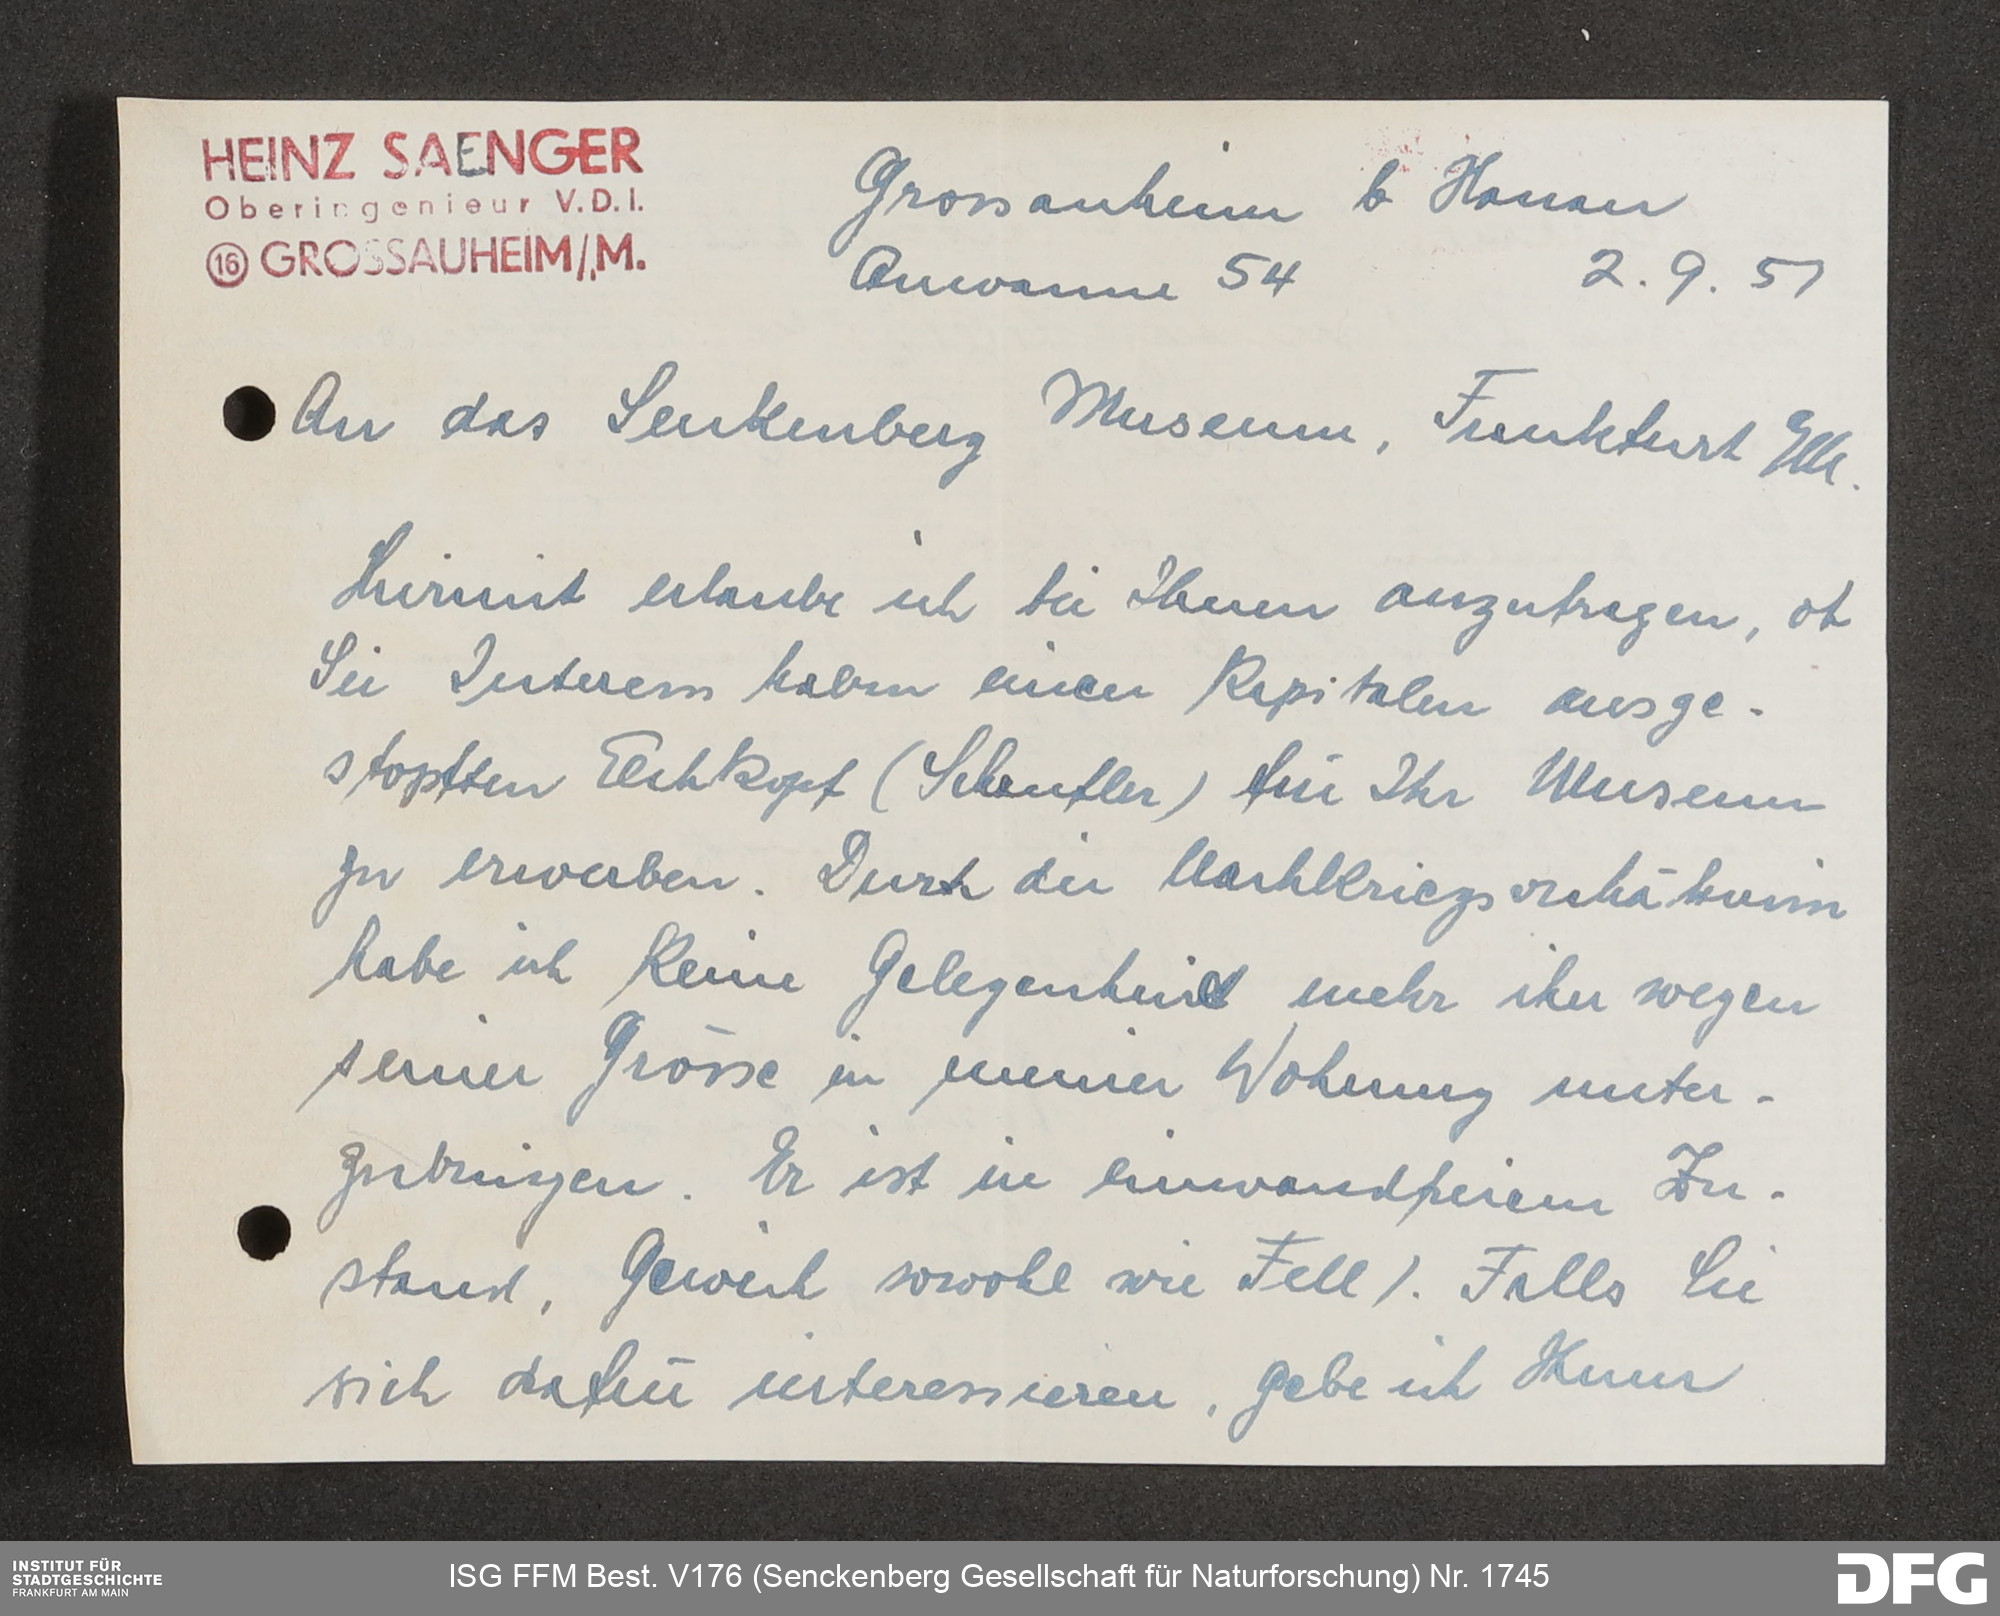 HEINZ SAENGER
Oberingenieur V.D.I.
16 GROSSAUHEIM/M.
Grossauheim b Hanau
Auwanne 54 2.9.51
An das Senkenberg Museum, Frankfurt
Hiermit erlaube ich bei Ihnen anzufragen, ob
Sie Interesse haben einen Kapitalen ausge-
stopften Elchkopf (Schaufler) für Ihr Museum
zu erwerben. Durch die Nachkriegsverhältnisse
habe ich keine Gelegenheit mehr ihn wegen
seiner Grösse in meiner Wohnung unter-
zubringen. Er ist in einwandfreiem Zu-
stand, Geweih sowohl wie Fell). Falls Sie
sich dafür interessieren, gebe ich Ihnen
INSTITUT FÜR
STADTGESCHICHTE
FRANKFURT AM MAIN
ISG FFM Best. V176 (Senckenberg Gesellschaft für Naturforschung) Nr. 1745
DFG